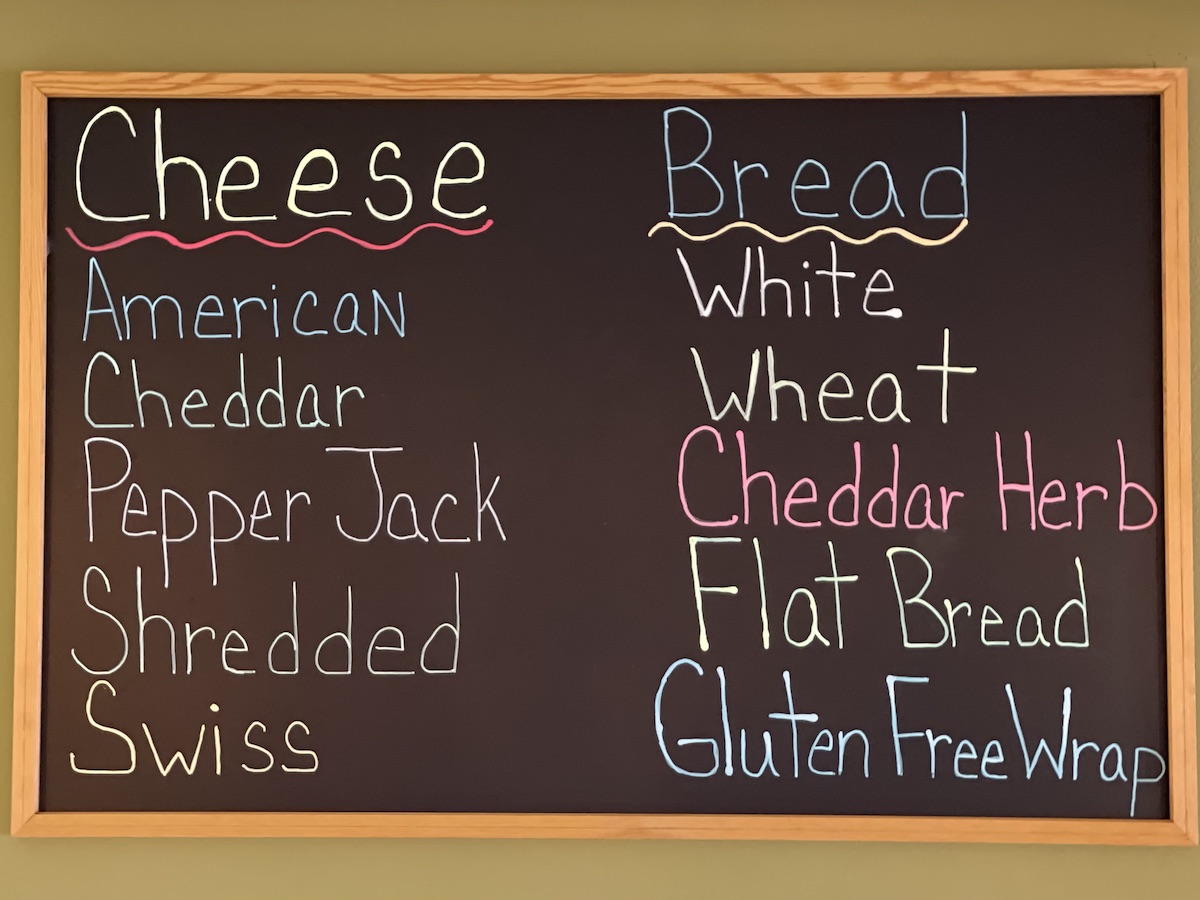 Cheese
American
Cheddar
Pepper Jack
Shredded
Swiss
Bread
White
Wheat
Cheddar Herb
Flat Bread
Gluten Free Wrap